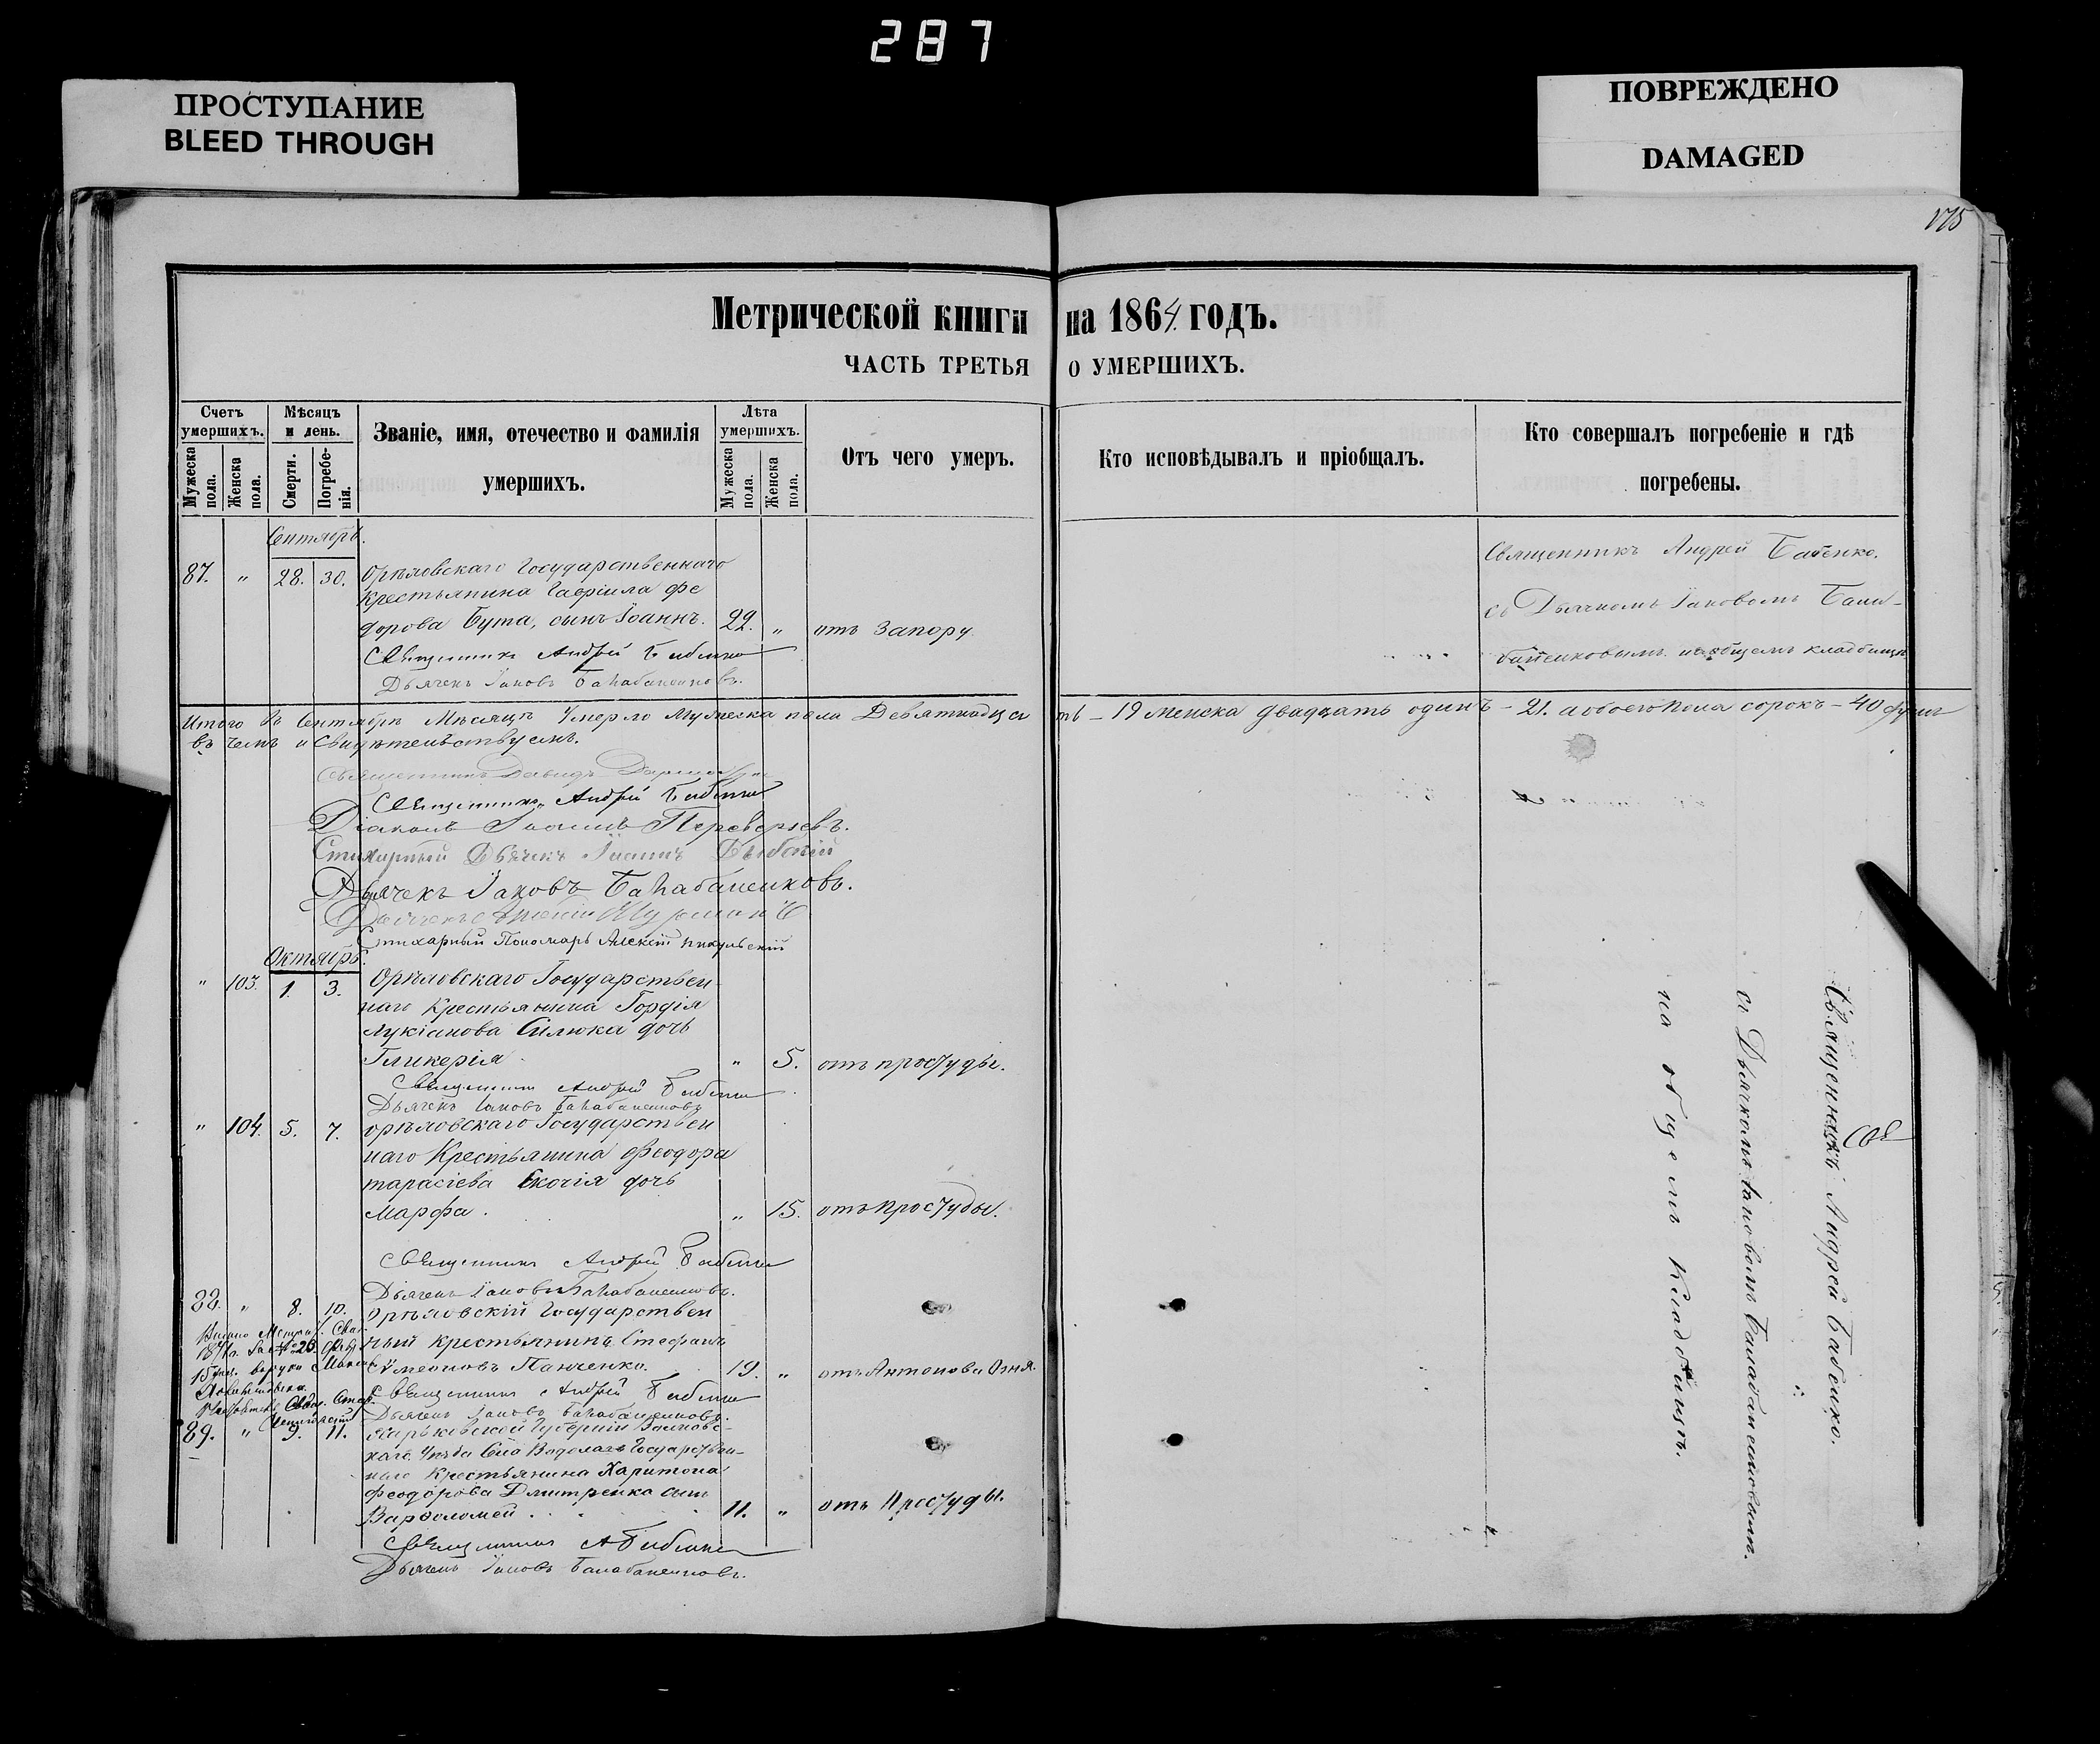 287
ПРОСТУПАНИЕ
BLEED THROUGH
ПОВРЕЖДЕНО
DAMAGED
175
Метрической книги на 1864 годъ.
ЧАСТЬ ТРЕТЬЯ О УМЕРШИХЪ.
Счетъ умершихъ.
Мужеска пола.
Женска пола.
Мѣсяцъ и день.
Смерти.
Погребенія.
Званіе, имя, отечество и фамилія умершихъ.
Лѣта умершихъ.
Мужеска пола.
Женска пола.
Отъ чего умеръ.
Кто исповѣдывалъ и пріобщалъ.
Кто совершалъ погребеніе и гдѣ погребены.
Сентябрь.
87. " 28. 30. Орѣловскаго Государственнаго
Крестьянина Гавріила Фе
дорова Бута, сынъ Іоаннъ. 22. " отъ Запору
Священникъ Андрей Бабенко
Дьячекъ Іаковъ Балабаненковъ.
Священникъ Андрей Бабенко.
съ Дьячкомъ Іаковомъ Бала-
баненковымъ на общемъ кладбищѣ
Итого въ Сентябрѣ Мѣсяцѣ Умерло Мужеска пола Девятнадцать – 19 женска двадцать одинъ – 21. а обоего пола сорокъ – 40 душъ
въ чемъ и Свидѣтельствуемъ.
Священникъ Давидъ
Священникъ Андрей Бабенко
Діаконъ Іоаннъ Переверзевъ.
Стихарный Дьячекъ Іоаннъ
Дьячекъ Іаковъ Балабаненковъ.
Дьячекъ
Стихарный Пономарь Алексій
Октябрь.
" 103. 1. 3. Орѣловскаго Государствен
наго Крестьянина Гордія
Лукіанова Силюка дочь
Гликерія. " 5. отъ простуды.
Священникъ Андрей Бабенко
Дьячекъ Іаковъ Балабаненковъ
" 104. 5. 7. Орѣловскаго Государствен
наго Крестьянина Феодора
Тарасіева дочь
Марфа. " 15. отъ простуды.
Священникъ Андрей Бабенко
Дьячекъ Іаковъ Балабаненковъ.
88. " 8. 10. Орѣловскій Государствен
ный крестьянинъ Стефанъ
Сѵмеоновъ Панченко. 19. " отъ Антонова Огня.
Священникъ Андрей Бабенко
Дьячекъ Іаковъ Балабаненковъ.
89. " 9. 11. Харьковской Губерніи Валковс-
каго Уѣзда Села Водолагъ Государствен-
наго Крестьянина Харитона
Феодорова Дмитренка сынъ
Варѳоломей. 11. " отъ Простуды.
Священникъ А Бабенко
Дьячекъ Іаковъ Балабаненковъ.
Священникъ Андрей Бабенко.
съ Дьячкомъ Іаковомъ Балабаненковымъ.
на общемъ Кладбищѣ.